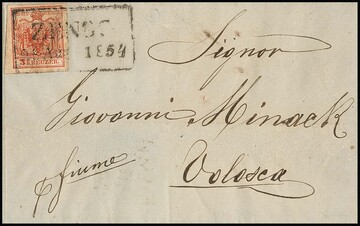 ZENGG
1854
3 KREUZER
Signor
Giovanni Minack
Volosca
fiume